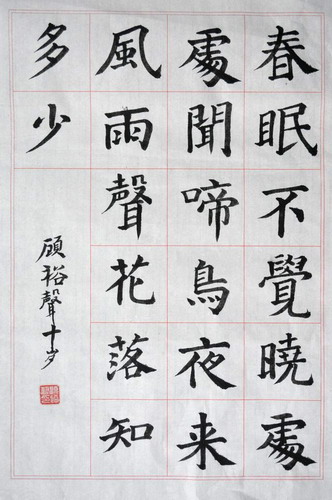 春眠不覺曉處
處聞啼鳥夜来
風雨聲花落知
多少
顧裕聲十岁